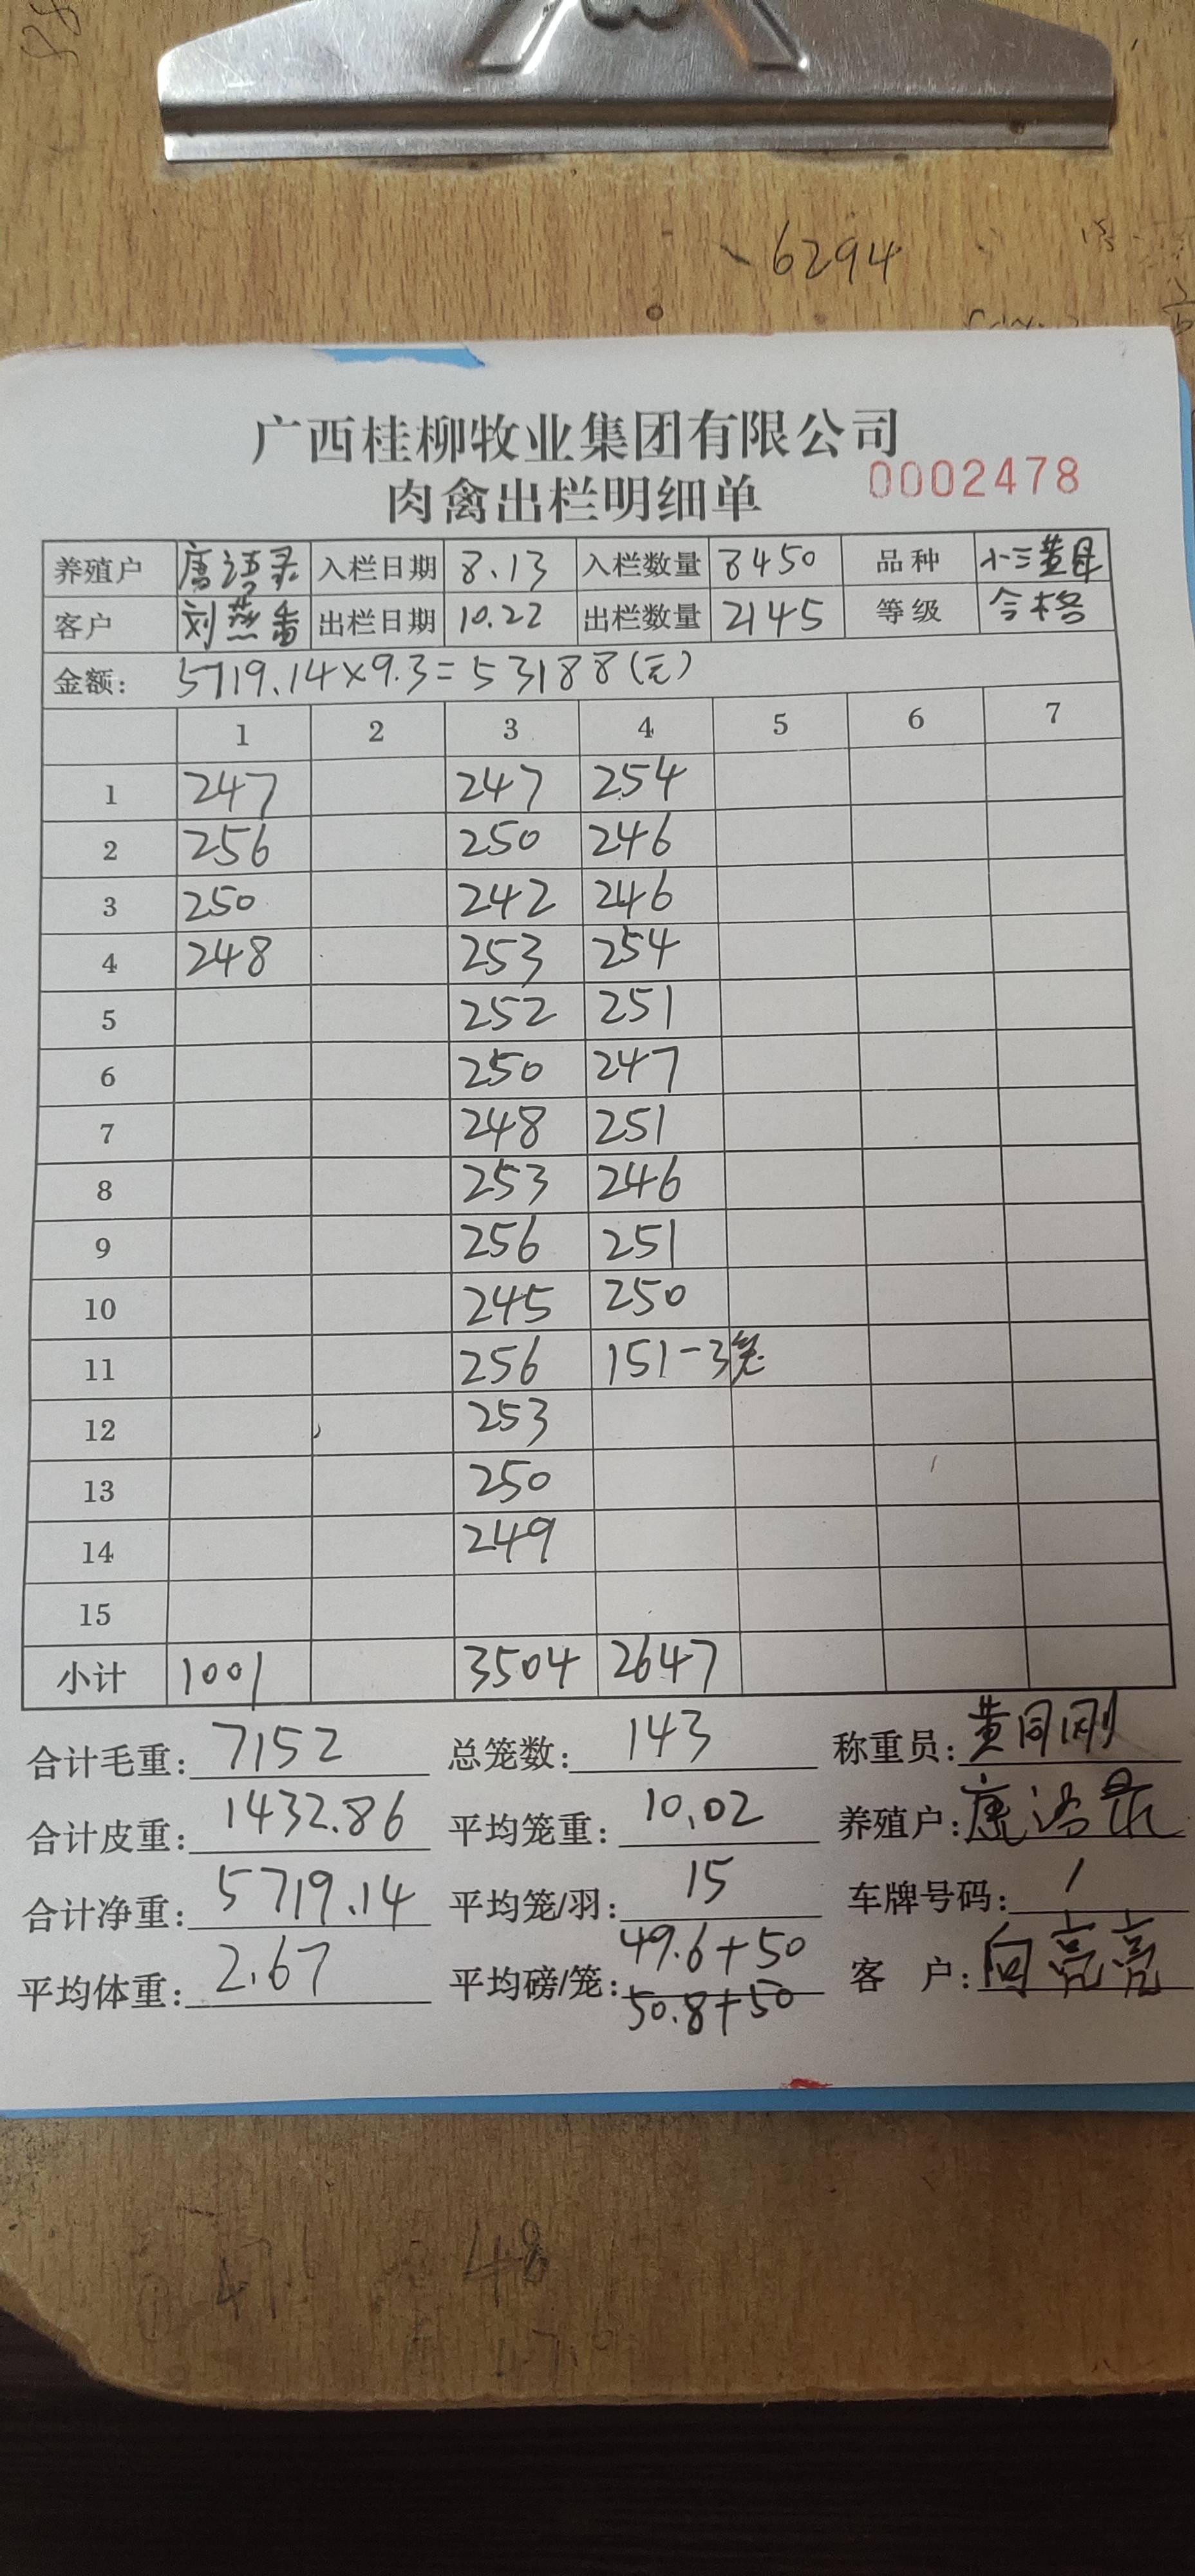 6294
广西桂柳牧业集团有限公司
肉禽出栏明细单 0002478
养殖户 入栏日期 8.13 入栏数量 8450 品种 小三黄母
客户 刘燕香 出栏日期 10.22 出栏数量 2145 等级 合格
金额: 5719.14×9.3=53188(元)
1 2 3 4 5 6 7
1 247 247 254
2 256 250 246
3 250 242 246
4 248 253 254
5 252 251
6 250 247
7 248 251
8 253 246
9 256 251
10 245 250
11 256 151-3笼
12 253
13 250
14 249
15
小计 1001 3504 2647
合计毛重: 7152 总笼数: 143 称重员: 黄同刚
合计皮重: 1432.86 平均笼重: 10.02 养殖户:
合计净重: 5719.14 平均笼/羽: 15 车牌号码: /
平均体重: 2.67 平均磅/笼: 49.6+50 客 户: 向亮亮
50.8+50
48